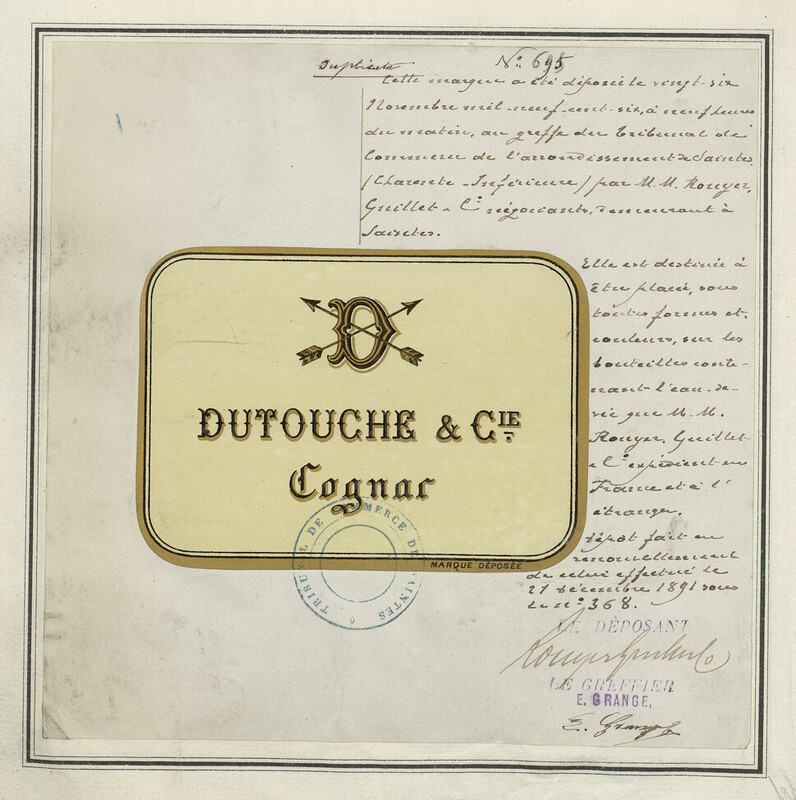 Duplicata
N° 695
Cette marque a été déposée le vingt-six
Novembre mil-neuf-cent-six, à neuf heures
du matin, au greffe du Tribunal de
Commerce de l'arrondissement de Saintes
(Charente-Inférieure) par M.M. Rouyer,
Guillet & Cie négociants, demeurant à
Saintes.
Elle est destinée à
être placée, sous
toutes formes et
couleurs, sur les
bouteilles conte-
nant l'eau-de-
vie que M.M.
Rouyer, Guillet
& Cie expédient en
France et à l'
étranger.
Dépôt fait en
renouvellement
de celui effectué le
27 décembre 1891 sous
le n° 368.
D
DUTOUCHE & CIE
Cognac
MARQUE DÉPOSÉE
TRIBUNAL DE COMMERCE DE SAINTES
LE DÉPOSANT
Rouyer Guillet & Co
LE GREFFIER
E. GRANGE,
E. Grange